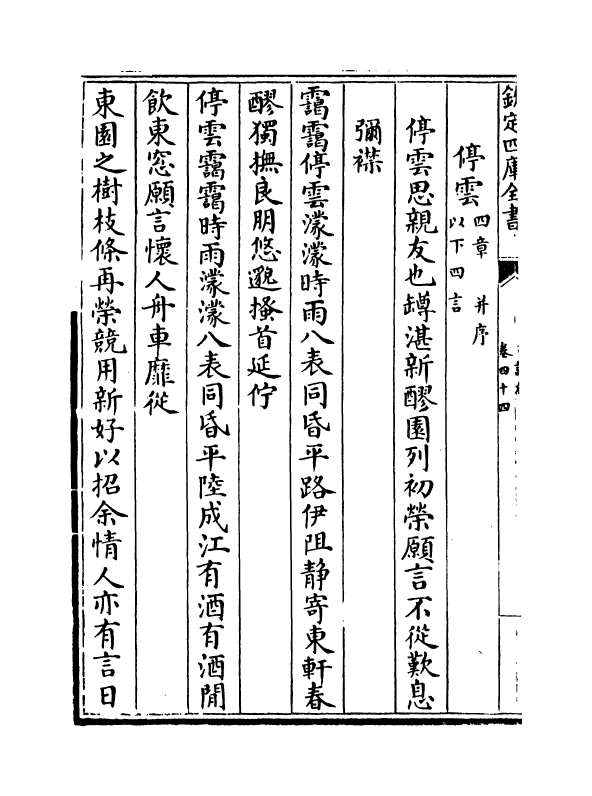 欽定四庫全書
卷四十四
停雲四章 并序
以下四言
停雲思親友也罇湛新醪園列初榮願言不從歎息
彌襟
靄靄停雲濛濛時雨八表同昏平路伊阻静寄東軒春
醪獨撫良朋悠邈搔首延佇
停雲靄靄時雨濛濛八表同昏平陸成江有酒有酒閒
飲東窓願言懐人舟車靡從
東園之樹枝條再榮競用新好以招余情人亦有言日